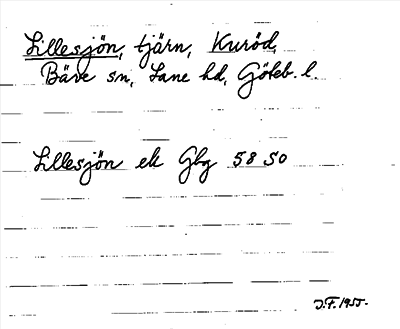 Lillesjön, tjärn, Kuröd,
Bäve sn, Lane hd, Göteb. l.
Lillesjön ek Gbg 58 SO
J.F. 1955.